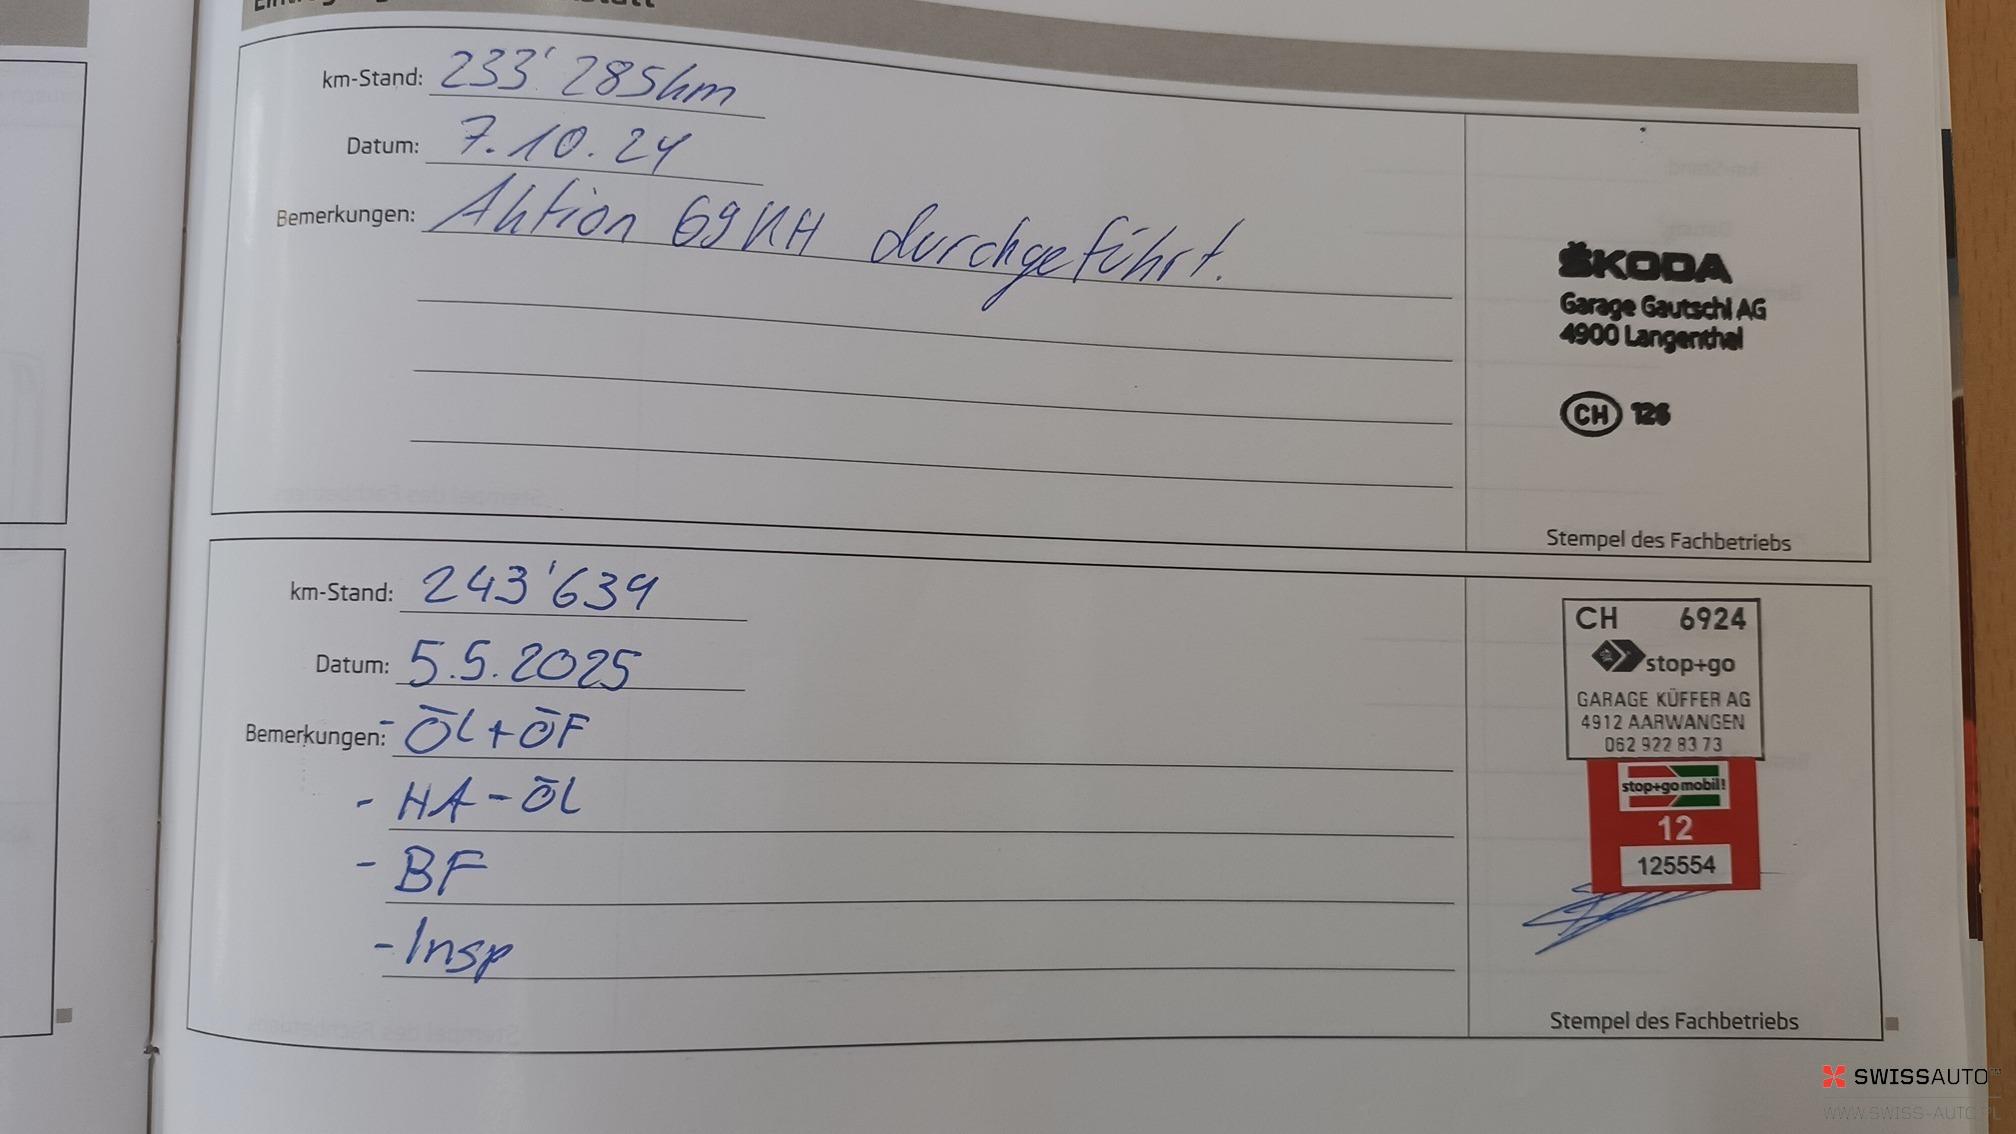 km-Stand: 233'285km
Datum: 7.10.24
Bemerkungen: Aktion 69KH durchgeführt.
ŠKODA
Garage Gautschi AG
4900 Langenthal
CH 126
Stempel des Fachbetriebs
km-Stand: 243'639
Datum: 5.5.2025
Bemerkungen: - ÖL + ÖF
- HA - ÖL
- BF
- Insp
CH 6924
stop+go
GARAGE KÜFFER AG
4912 AARWANGEN
062 922 83 73
stop+go mobil!
12
125554
Stempel des Fachbetriebs
SWISSAUTO™
WWW.SWISS-AUTO.PL